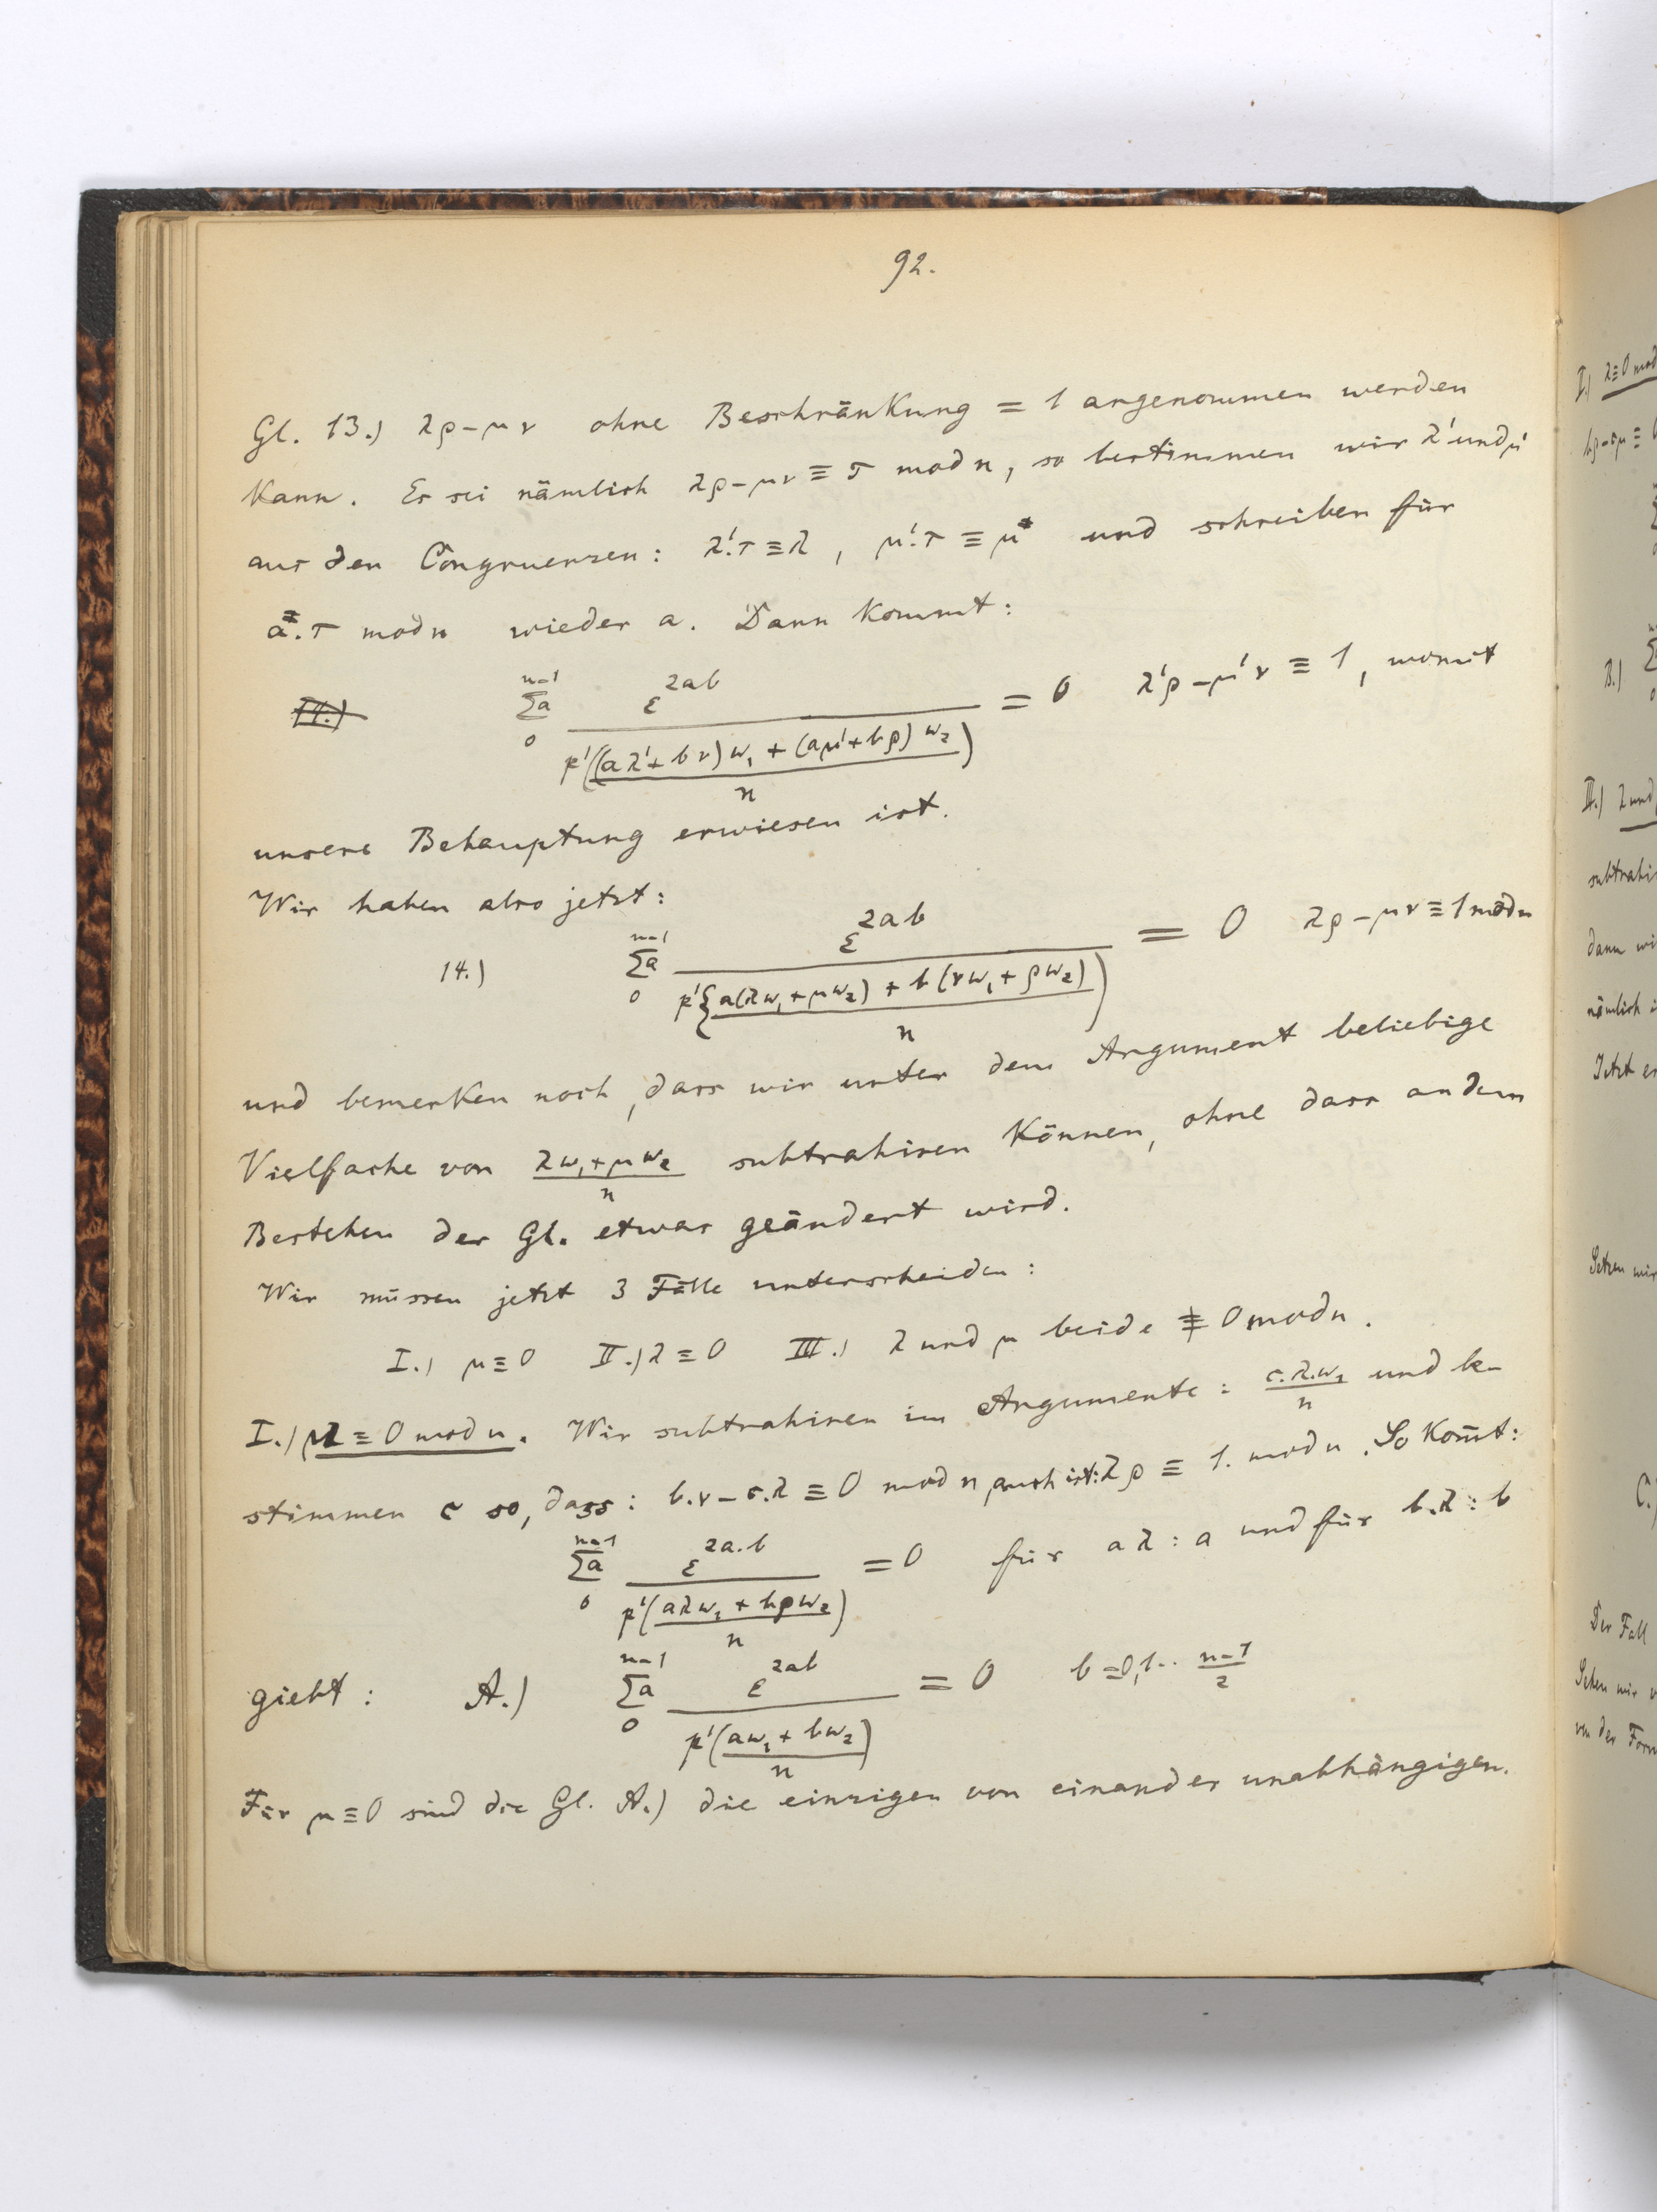 92.
Gl. 13.) λρ-μν ohne Beschränkung = 1 angenommen werden
kann. Es sei nämlich λρ-μν ≡ τ mod n, so bestimmen wir λ' und μ'
aus den Congruenzen: λ'.τ ≡ λ, μ'.τ ≡ μ und schreiben für
a.τ mod n wieder a. Dann kommt:
14.) n-1 Σa 0 ε^2ab / p'((aλ'+bν)w₁ + (aμ'+bρ)w₂ / n) = 0 λ'ρ-μ'ν ≡ 1, womit
unsere Behauptung erwiesen ist.
Wir haben also jetzt:
14.) n-1 Σa 0 ε^2ab / p'{a(λw₁+μw₂) + b(νw₁+ρw₂) / n) = 0 λρ-μν ≡ 1 mod n
und bemerken noch, dass wir unter dem Argument beliebige
Vielfache von λw₁+μw₂ / n subtrahiren können, ohne dass an dem
Bestehen der Gl. etwas geändert wird.
Wir müssen jetzt 3 Fälle unterscheiden:
I.) μ≡0 II.) λ≡0 III.) λ und μ beide ≢ 0 mod n.
I.) μ ≡ 0 mod n. Wir subtrahiren im Argumente: c.λ.w₁ / n und be-
stimmen c so, dass: b.ν-c.λ ≡ 0 mod n, auch ist: λρ ≡ 1. mod n. So kom̄t:
n-1 Σa 0 ε^2a.b / p'(aλw₁ + bρw₂ / n) = 0 für aλ : a und für b.λ : b
giebt: A.) n-1 Σa 0 ε^2ab / p'(aw₁ + bw₂ / n) = 0 b=0,1.. n-1 / 2
Für μ≡0 sind die Gl. A.) die einzigen von einander unabhängigen.
I.) λ≡0 mod
B.)
II.) λ und
subtrahi
dann wi
nämlich i
Jetzt er
Setzen wir
C.)
Der Fall
Setzen wir
von der Form